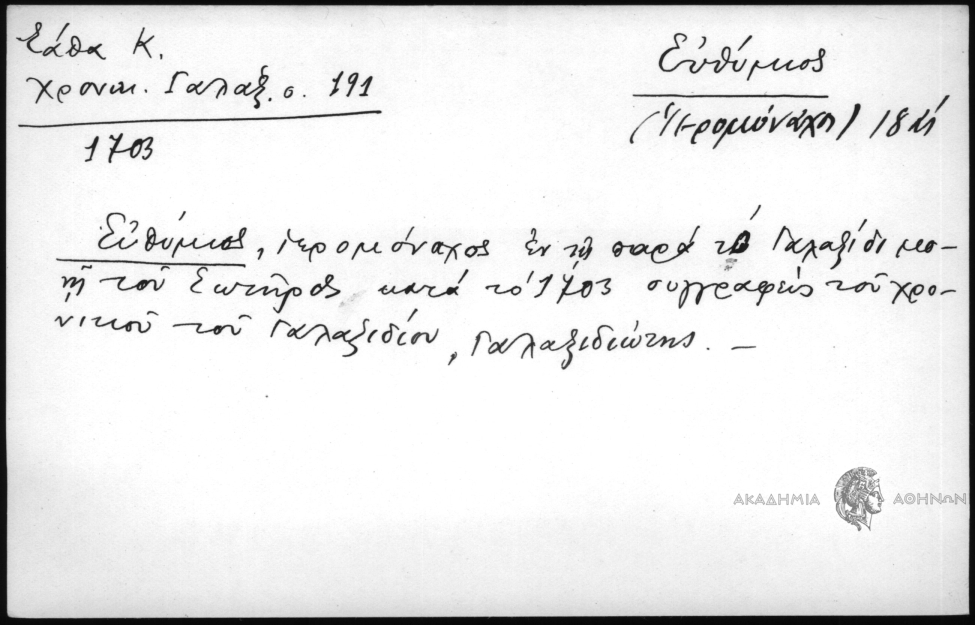 Σάθα Κ.
χρονικ. Γαλαξ. σ. 191
1703
Εὐθύμιος
(Ἱερομόναχος) 18
Εὐθύμιος, ἱερομόναχος ἐν τῇ παρά τό Γαλαξίδι μο-
νῇ τοῦ Σωτῆρος κατά τό 1703 συγγραφεύς τοῦ χρο-
νικοῦ τοῦ Γαλαξιδίου, Γαλαξιδιώτης. —
ΑΚΑΔΗΜΙΑ ΑΘΗΝΩΝ